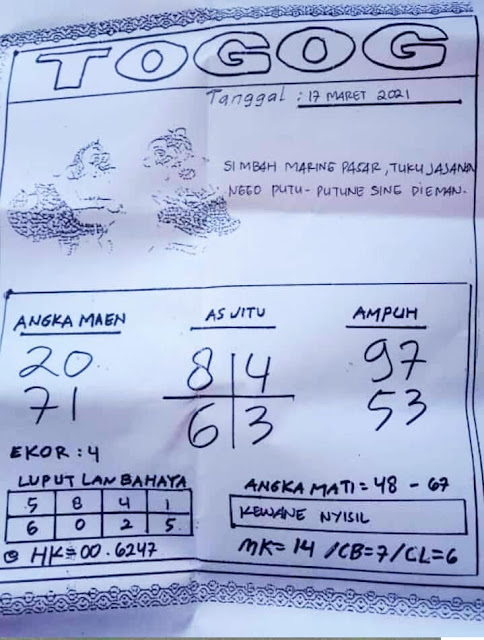 TOGOG
Tanggal : 17 MARET 2021
SIMBAH MARING PASAR, TUKU JAJANAN
NGGO PUTU - PUTUNE SING DIEMAN.
ANGKA MAEN
20
71
AS JITU
8 4
6 3
AMPUH
97
53
EKOR : 4
LUPUT LAN BAHAYA
5 8 4 1
6 0 2 5
HK=00.6247
ANGKA MATI = 48 - 67
KEWANE NYISIL
MK= 14 / CB=7 / CL=6